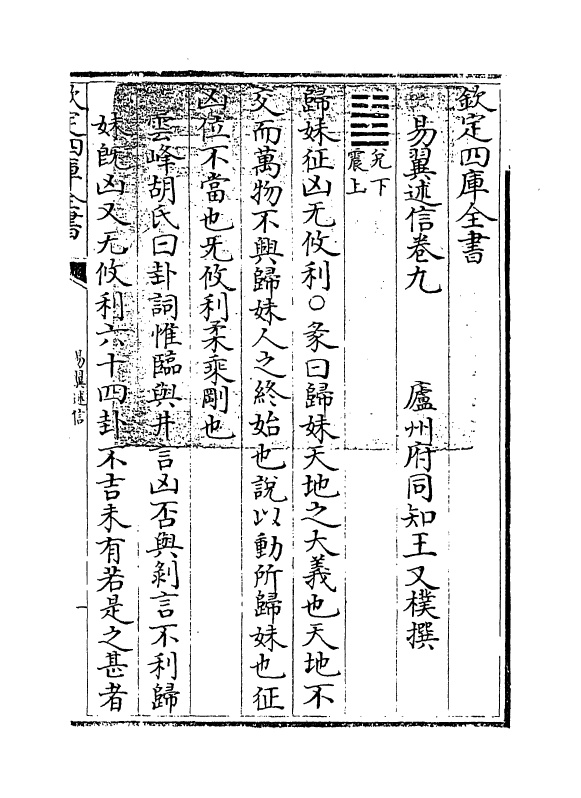 欽定四庫全書
易翼述信卷九 廬州府同知王又樸撰
䷵兌下震上
歸妹征凶无攸利○彖曰歸妹天地之大義也天地不
交而萬物不興歸妹人之終始也說以動所歸妹也征
凶位不當也无攸利柔乘剛也
雲峰胡氏曰卦詞惟臨與井言凶否與剝言不利歸
妹既凶又无攸利六十四卦不吉未有若是之甚者
欽定四庫全書
易翼述信
一